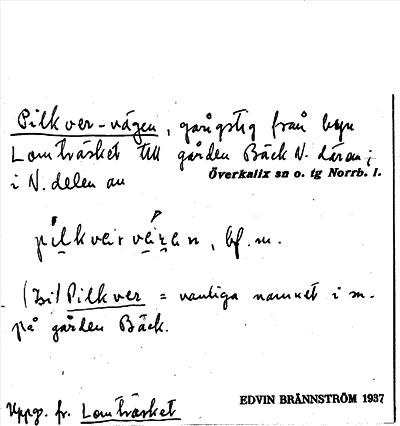 Pilkver-vägen, gångstig från byn
Lomträsket till gården Bäck N. därom;
i N. delen av
Överkalix sn o. tg Norrb. l.
bf. m.
(Isi) Pilkver = vanliga namnet i sn.
på gården Bäck.
Uppg. fr. Lomträsket
EDVIN BRÄNNSTRÖM 1937